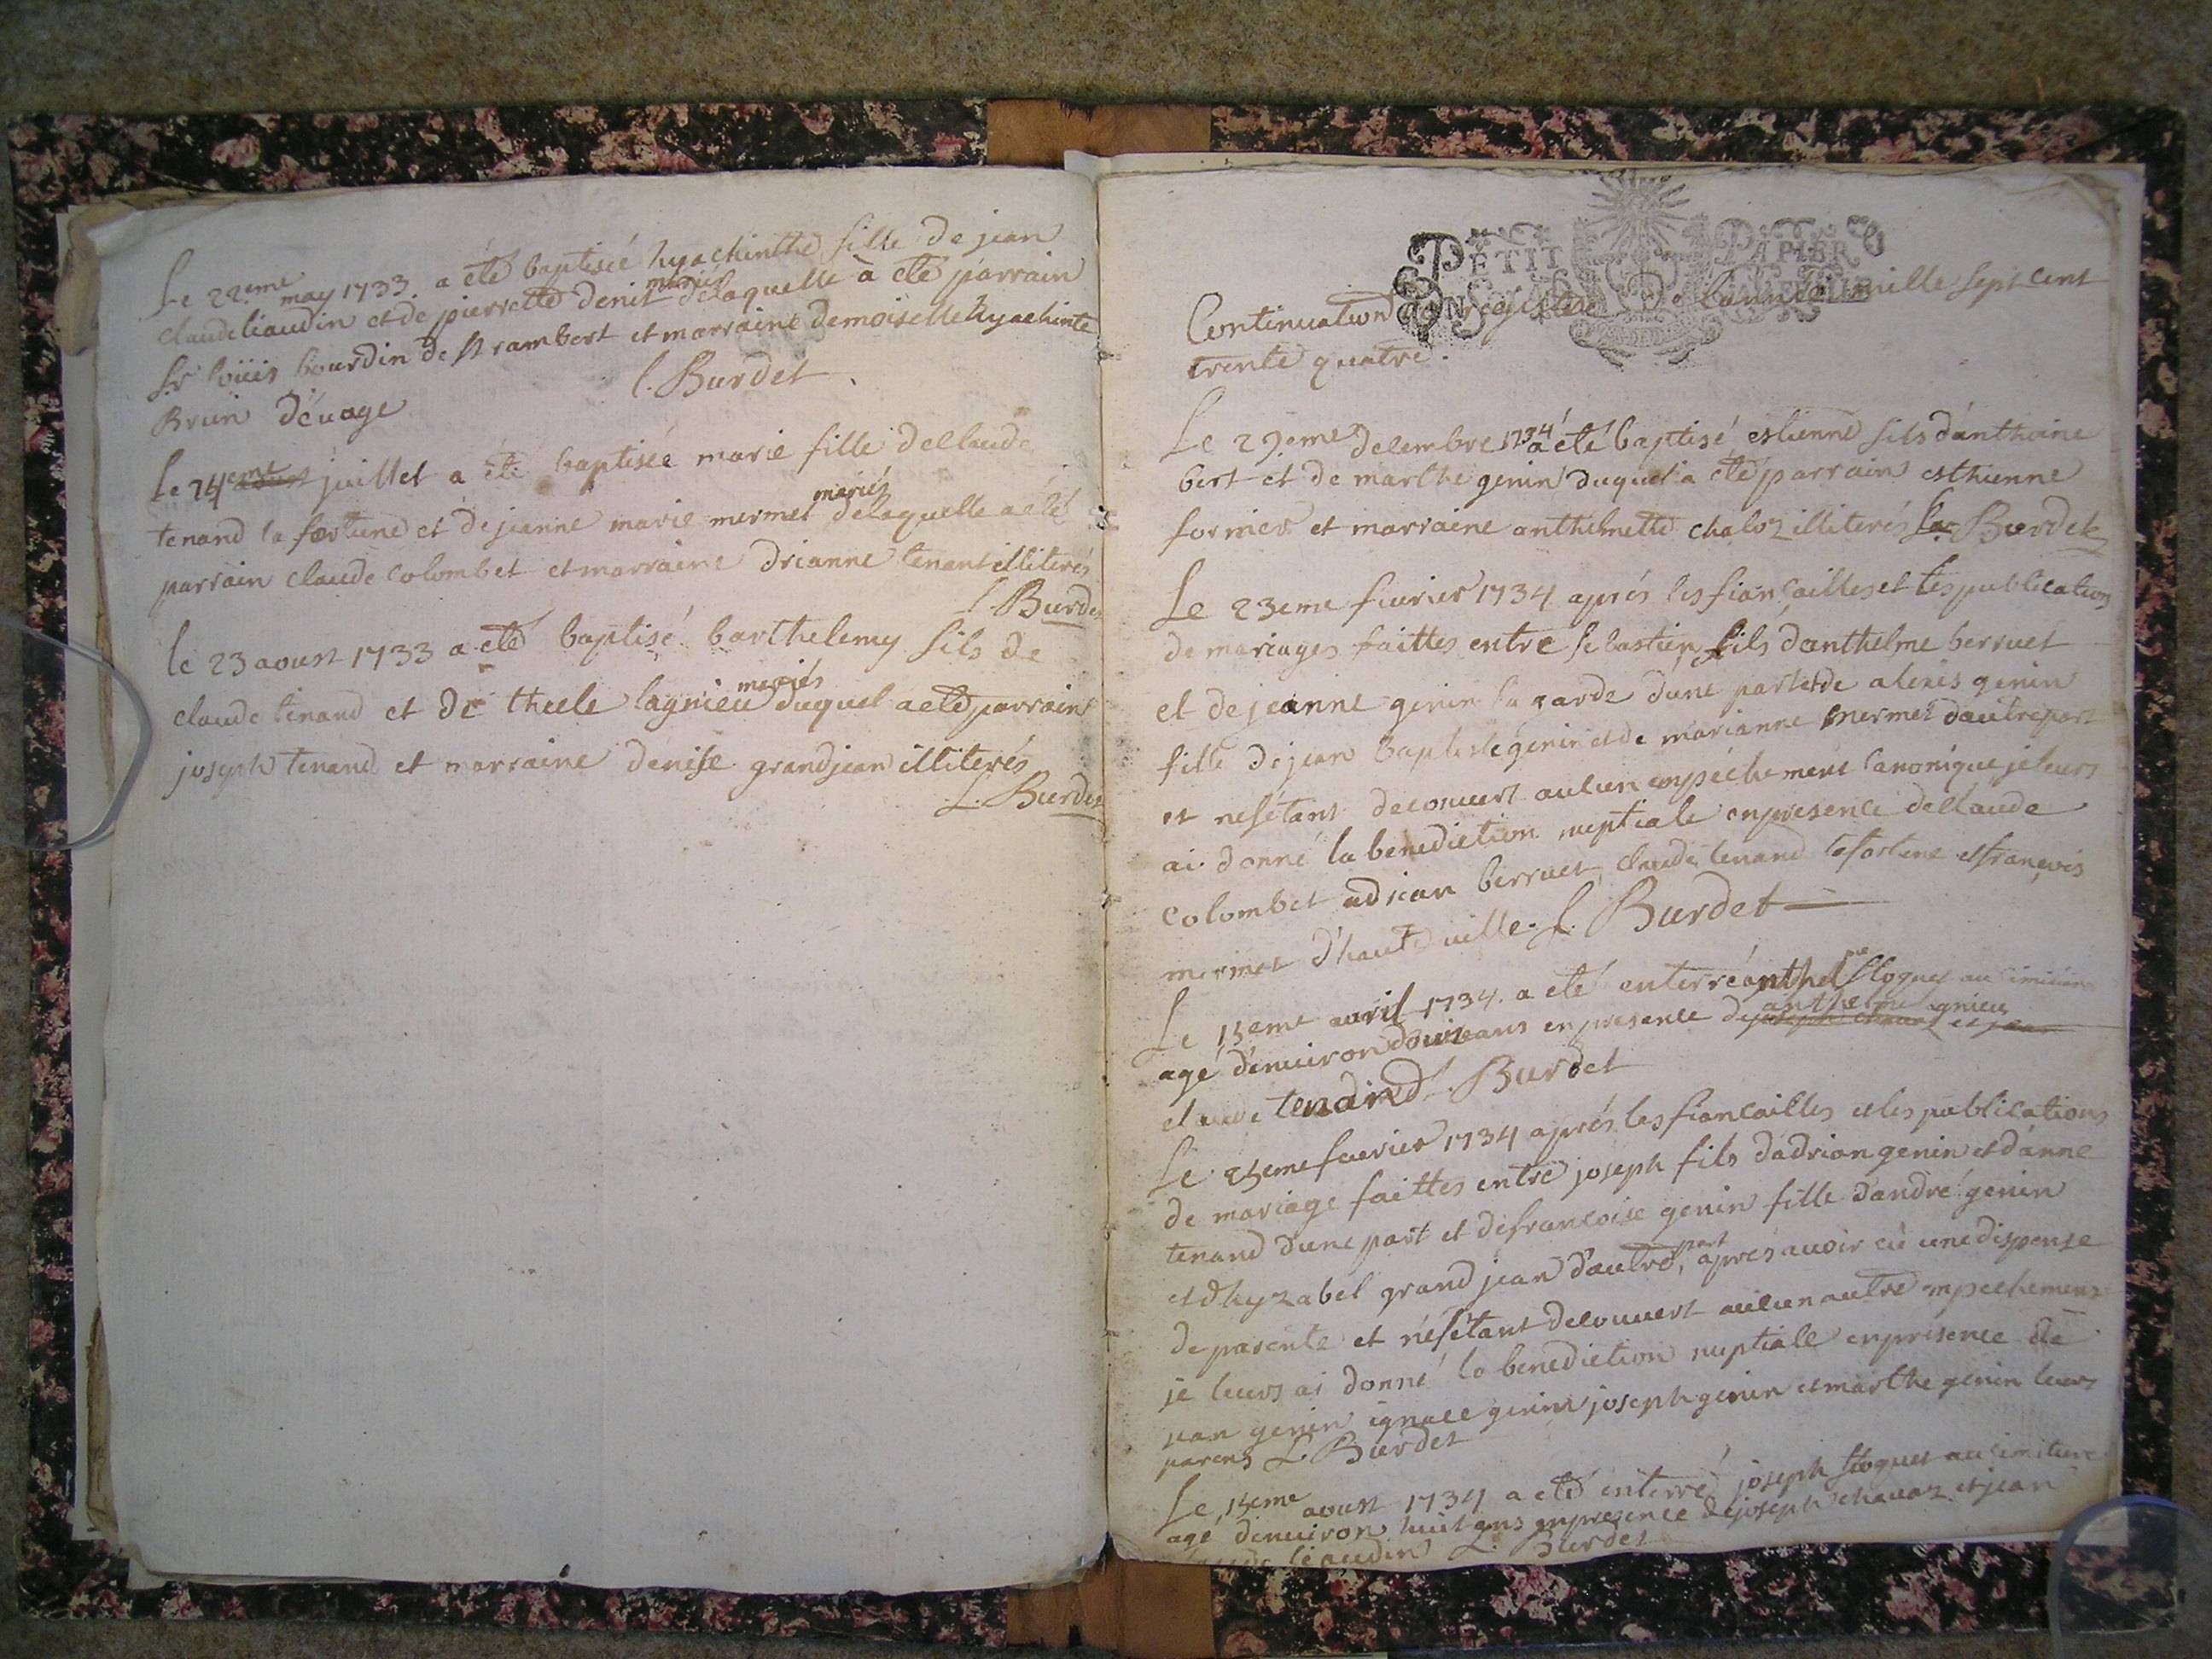 Le 22.eme may 1733. a été baptisée hyachinthe fille de jean
claude liaudin et de pierrette denit mariés de laquelle à été parrain
Sr loüis bourdin de St rambert et marraine demoiselle hyachinte
Brun d'évoge l. Burdet.
le 24eme juillet a été baptisée marie fille de claude
tenand la fortune et de jeanne marie mermet mariés de laquelle a été
parrain claude colombet et marraine drianne tenant illiterés
l. Burdet
le 23 aoust 1733 a été baptisé barthelemy fils de
claude tenand et de thecle lagnieu mariés duquel a été parrain
joseph tenand et marraine denise grandjean illiterés
L. Burdet
PETIT PAPIER
Continuation du registre De l'année mille sept cent
trente quatre.
Le 29.eme decembre 1734 a été baptisé estienne fils d'anthoine
bert et de marthe genin duquel a été parrain esthienne
fornier et marraine anthelmette chaloz illiterés Burdet
Le 23eme feurier 1734 aprés les fiançailles et les publications
de mariages faittes entre sebastien fils d'anthelme berruet
et de jeanne genin la garde d'une part et de alexis genin
fille de jean baptiste genin et de marianne mermet d'autre part
et ne s'étant decouvert aucun empéchement canonique je leurs
ai donné la benediction nuptiale en presence de claude
colombet adrian berruet, claude tenand lafortune et françois
mermet d'hauteville. L. Burdet
Le 15eme auril 1734. a été enterré anthelme floquet au cimitiere
agé d'enuiron douze ans en presence de joseph chavaz et jean anthelme lagnieu
claude tenand Burdet
Le 25eme feurier 1734 aprés les fiancailles et les publications
de mariage faittes entre joseph fils d'adrian genin et d'anne
tenand d'une part et de francoise genin fille d'andré genin
et d'hyzabel grand jean d'autre part, aprés auoir eù une dispense
de parenté et ne s'étant decouuert aucun autre empechement
je leurs ai donné la benediction nuptiale en présence de
jean genin ignace genin joseph genin et marthe genin leurs
parens L. Burdet
Le 15eme aoust 1734 a été enterré joseph floquet au cimitiere
agé d'enuiron huit ans en presence de joseph chauaz et jean
claude liaudin L. Burdet